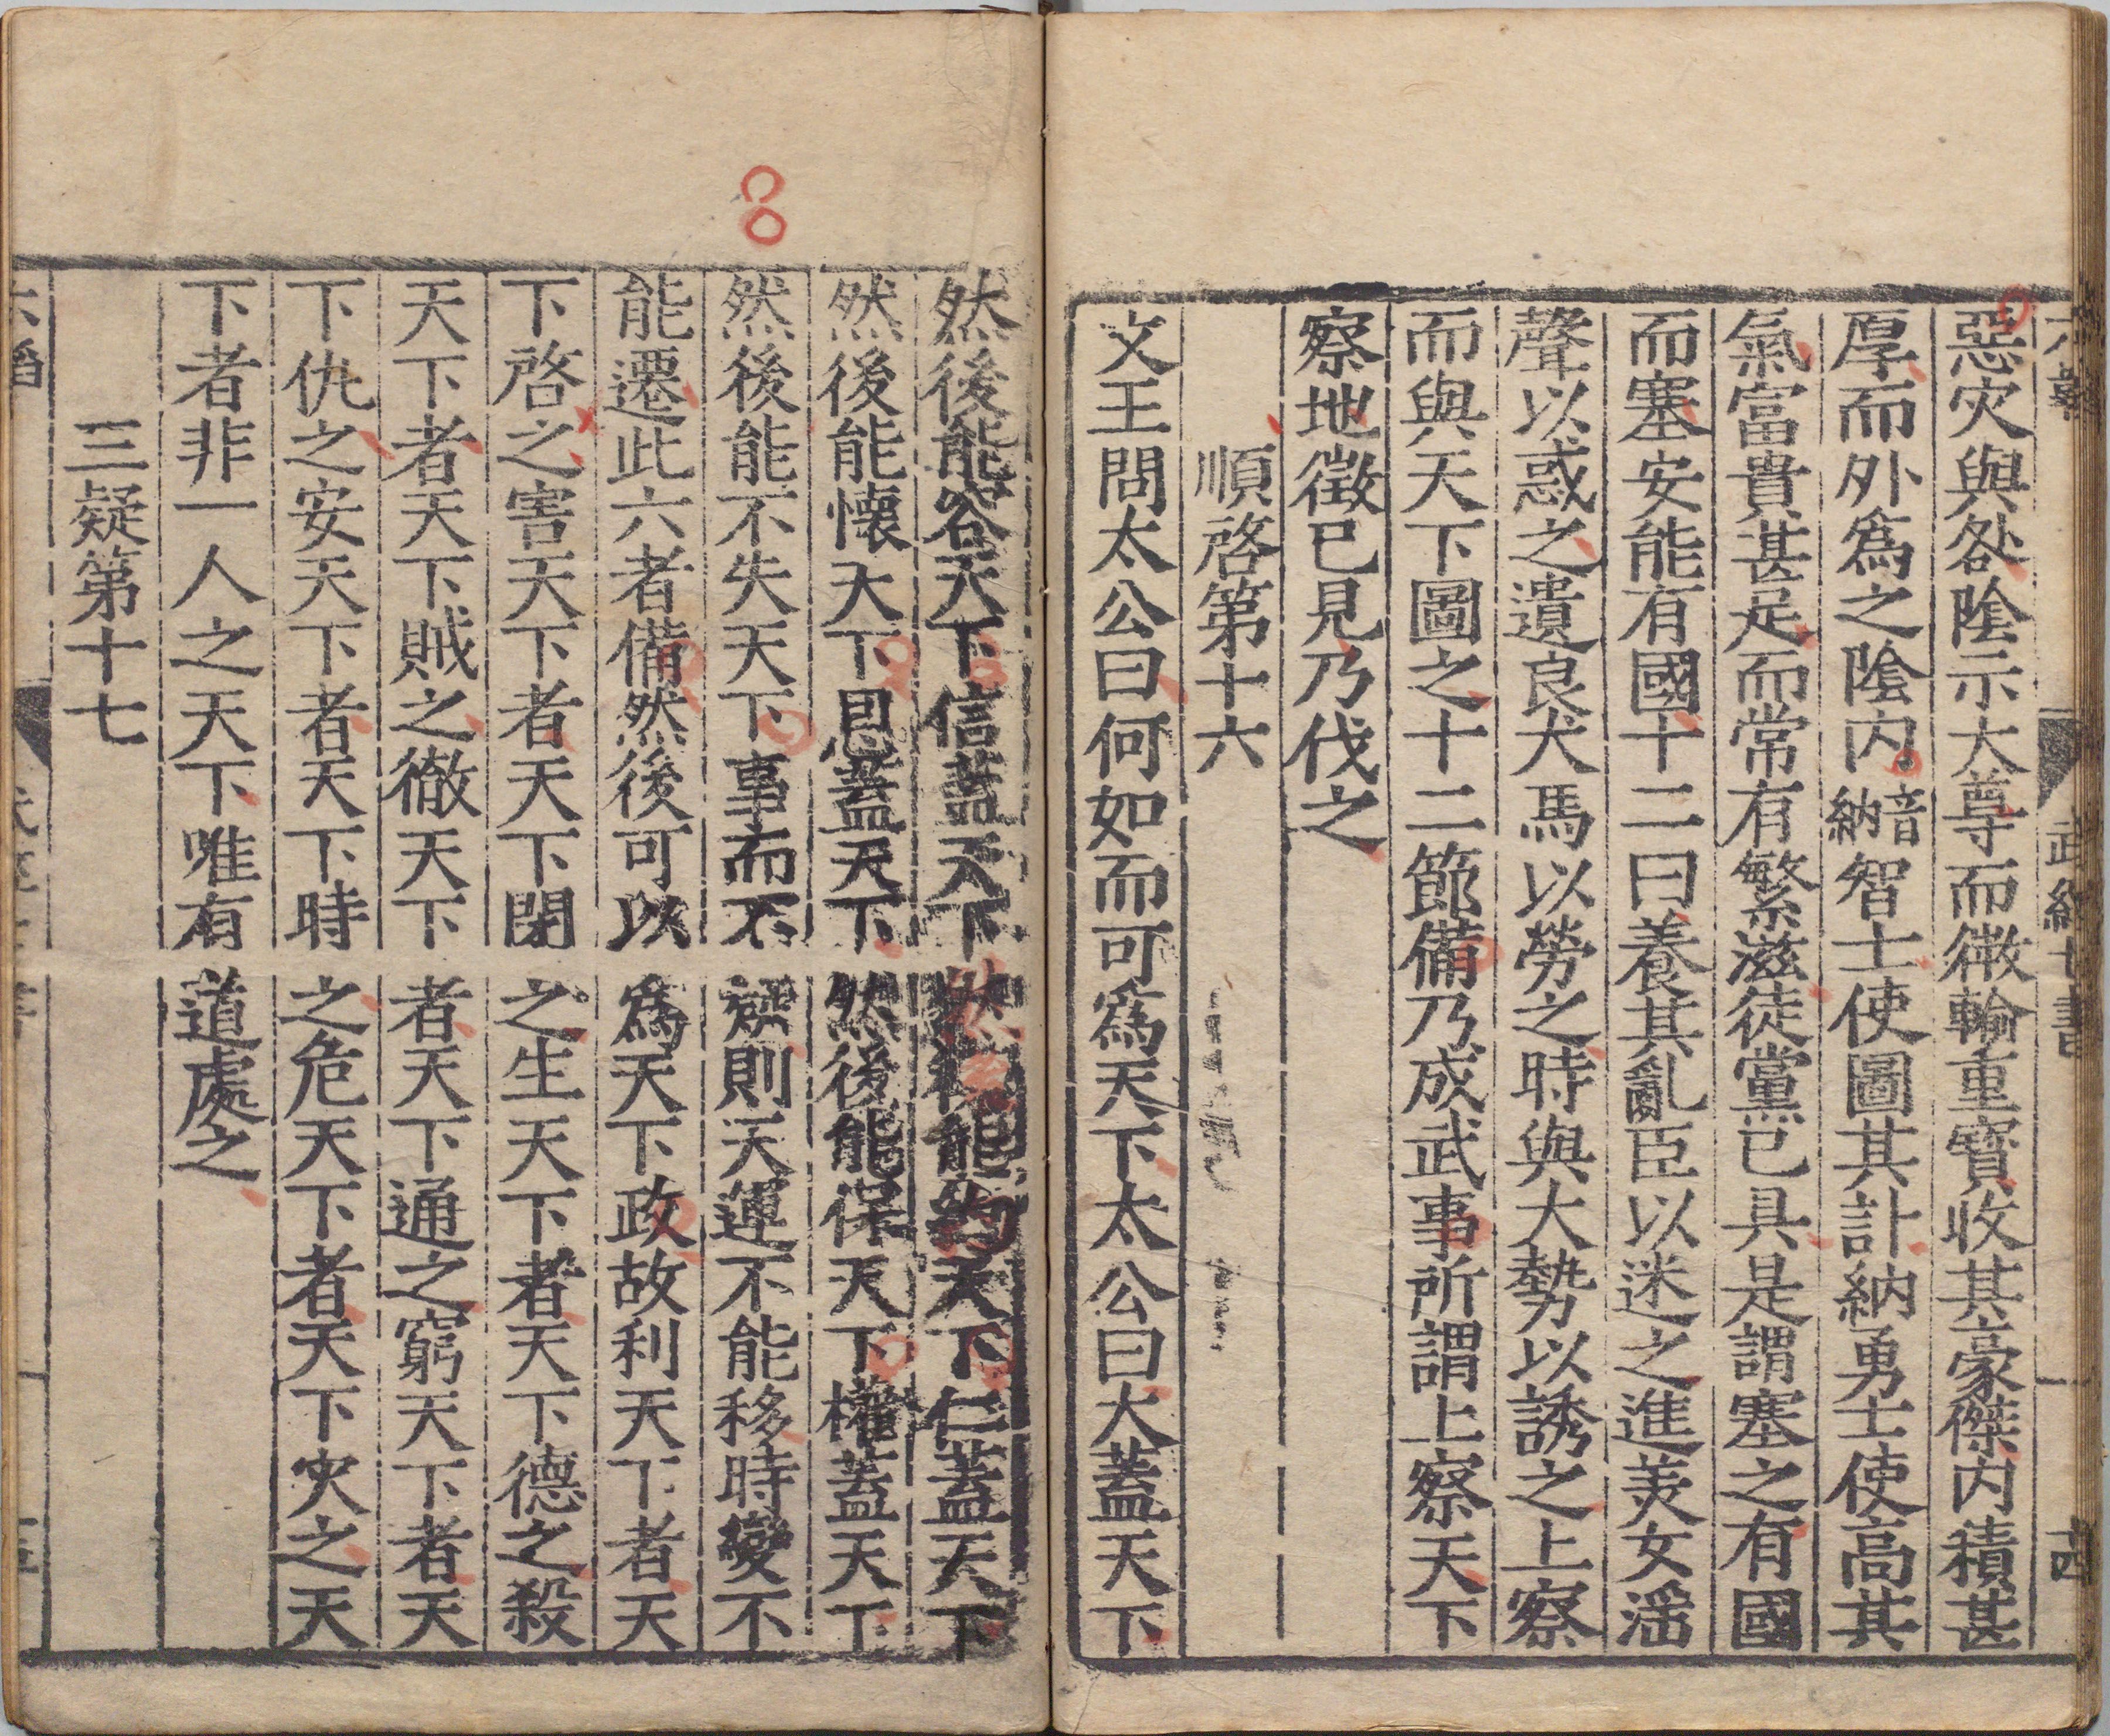 惡灾與咎陰示大尊而微輸重寶收其豪傑内積甚
厚而外爲之陰内音納智士使圖其計納勇士使高其
氣富貴甚足而常有繁滋徒黨已具是謂塞之有國
而塞安能有國十二曰養其亂臣以迷之進美女淫
聲以惑之遺良犬馬以勞之時與大勢以誘之上察
而與天下圖之十二節備乃成武事所謂上察天下
察地徵已見乃伐之
順啓第十六
文王問太公曰何如而可爲天下太公曰大蓋天下
然後能容天下信蓋天下然後能約天下仁蓋天下
然後能懷天下恩蓋天下然後能保天下權蓋天下
然後能不失天下事而不疑則天運不能移時變不
能遷此六者備然後可以爲天下政故利天下者天
下啓之害天下者天下閉之生天下者天下德之殺
天下者天下賊之徹天下者天下通之窮天下者天
下仇之安天下者天下時之危天下者天下灾之天
下者非一人之天下唯有道處之
三疑第十七